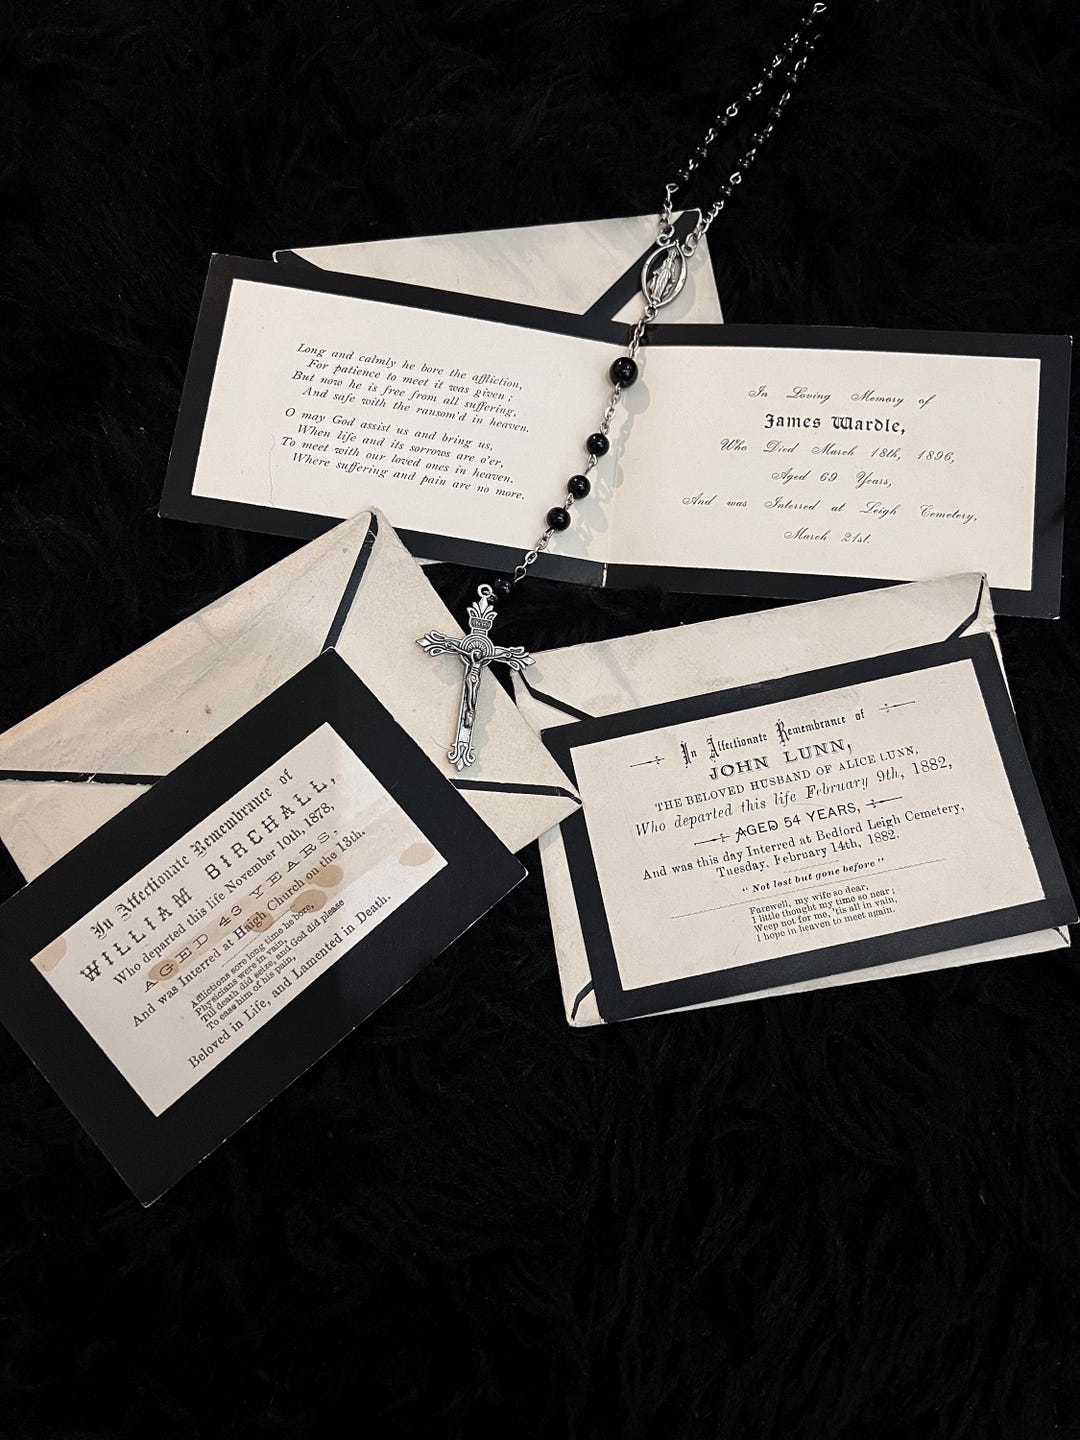 Long and calmly he bore the affliction,
For patience to meet it was given;
But now he is free from all suffering,
And safe with the ransom'd in heaven.
O may God assist us and bring us,
When life and its sorrows are o'er,
To meet with our loved ones in heaven.
Where suffering and pain are no more.
In Loving Memory of
James Wardle,
Who Died March 18th, 1896,
Aged 69 Years,
And was Interred at Leigh Cemetery,
March 21st.
INRI
In Affectionate Remembrance of
JOHN LUNN,
THE BELOVED HUSBAND OF ALICE LUNN,
Who departed this life February 9th, 1882,
AGED 54 YEARS,
And was this day Interred at Bedford Leigh Cemetery,
Tuesday, February 14th, 1882.
"Not lost but gone before"
Farewell, my wife so dear,
I little thought my time so near;
Weep not for me, 'tis all in vain,
I hope in heaven to meet again.
In Affectionate Remembrance of
WILLIAM BIRCHALL,
Who departed this life November 10th, 1878,
AGED 43 YEARS.
And was Interred at Haigh Church on the 13th.
Afflictions sore long time he bore,
Physicians were in vain,
Till death did seize, and God did please
To ease him of his pain,
Beloved in Life, and Lamented in Death.